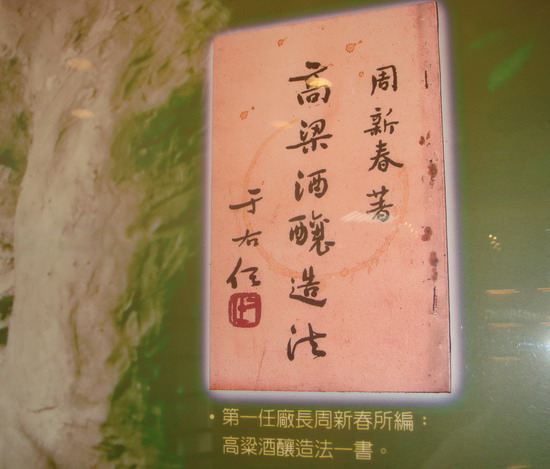 周新春著
高粱酒釀造法
于右任
第一任廠長周新春所編：
高粱酒釀造法一書。